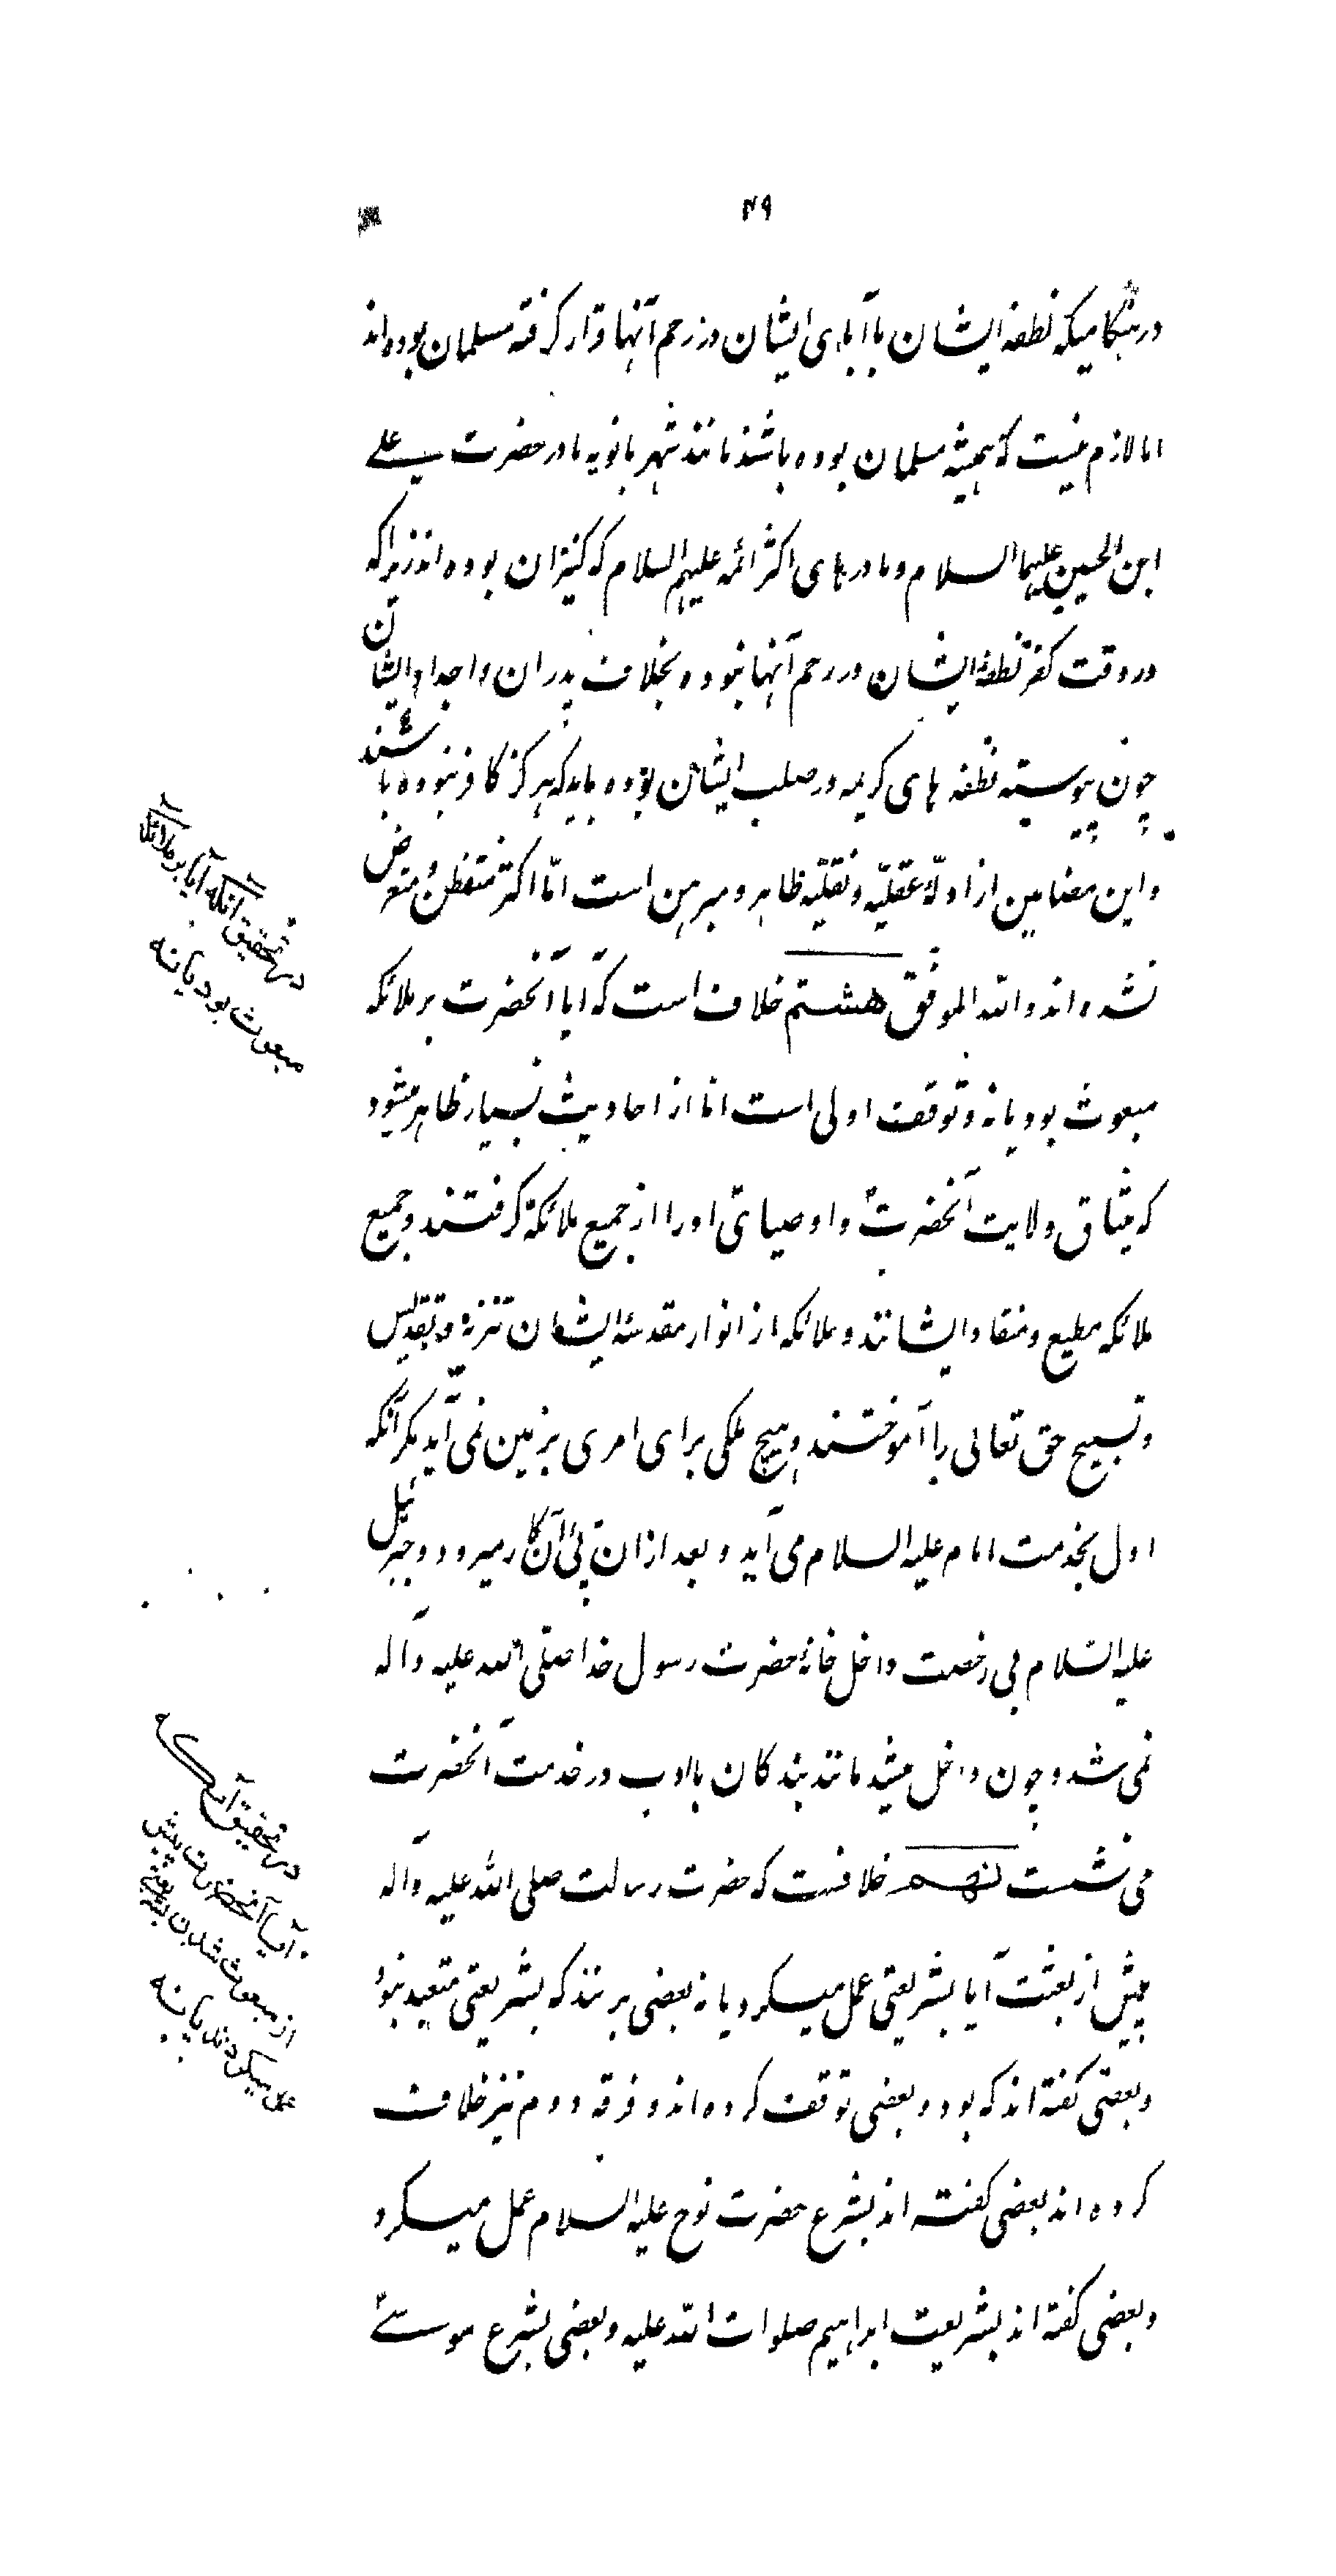 ۴۹
در هنگامیکه نطفه ایشان یا آبای ایشان در رحم آنها قرار گرفته مسلمان بوده اند
اما لازم نیست که همیشه مسلمان بوده باشند مانند شهربانویه مادر حضرت علی
ابن الحسین علیهما السلام و مادرهای اکثر ائمه علیهم السلام که کنیزان بوده اند زیرا که
در وقت کفر نطفهٔ ایشان در رحم آنها نبوده بخلاف پدران و اجداد ایشان
چون پیوسته نطفه های کریمه در صلب ایشان بوده باید که هرگز کافر نبوده باشند
و این مضامین از ادلّهٔ عقلیّه و نقلیّه ظاهر و مبرهن است امّا اکثر متفطّن و متعرض
نشده اند و الله الموفق هشتم خلاف است که آیا آنحضرت بر ملائکه
مبعوث بود یا نه و توقف اولی است اما از احادیث بسیار ظاهر میشود
که میثاق ولایت آنحضرت و اوصیای او را از جمیع ملائکه گرفتند و جمیع
ملائکه مطیع و منقاد ایشانند و ملائکه از انوار مقدسهٔ ایشان تنزیه و تقدیس
و تسبیح حق تعالی را آموختند و هیچ ملکی برای امری بزمین نمی آید مگر آنکه
اول بخدمت امام علیه السلام می آید و بعد ازان پی آن کار میرود و جبرئیل
علیه السّلام بی رخصت داخل خانهٔ حضرت رسول خدا صلّی الله علیه و آله
نمی شد و چون داخل میشد مانند بندگان با ادب در خدمت آنحضرت
می نشست نهم خلافست که حضرت رسالت صلی الله علیه و آله
پیش از بعثت آیا بشریعتی عمل میکرد یا نه بعضی برنند که بشریعتی متعبد نبود
و بعضی گفته اند که بود و بعضی توقف کرده اند و فرقه دوم نیز خلاف
کرده اند بعضی گفته اند بشرع حضرت نوح علیه السلام عمل میکرد
و بعضی گفته اند بشریعت ابراهیم صلوات الله علیه و بعضی بشرع موسیٰ
در تحقیق آنکه آیا بر ملائکه
مبعوث بود یا نه
در تحقیق آنکه
آیا آنحضرت پیش
از مبعوث شدن بشریعتی
عمل میکردند یا نه